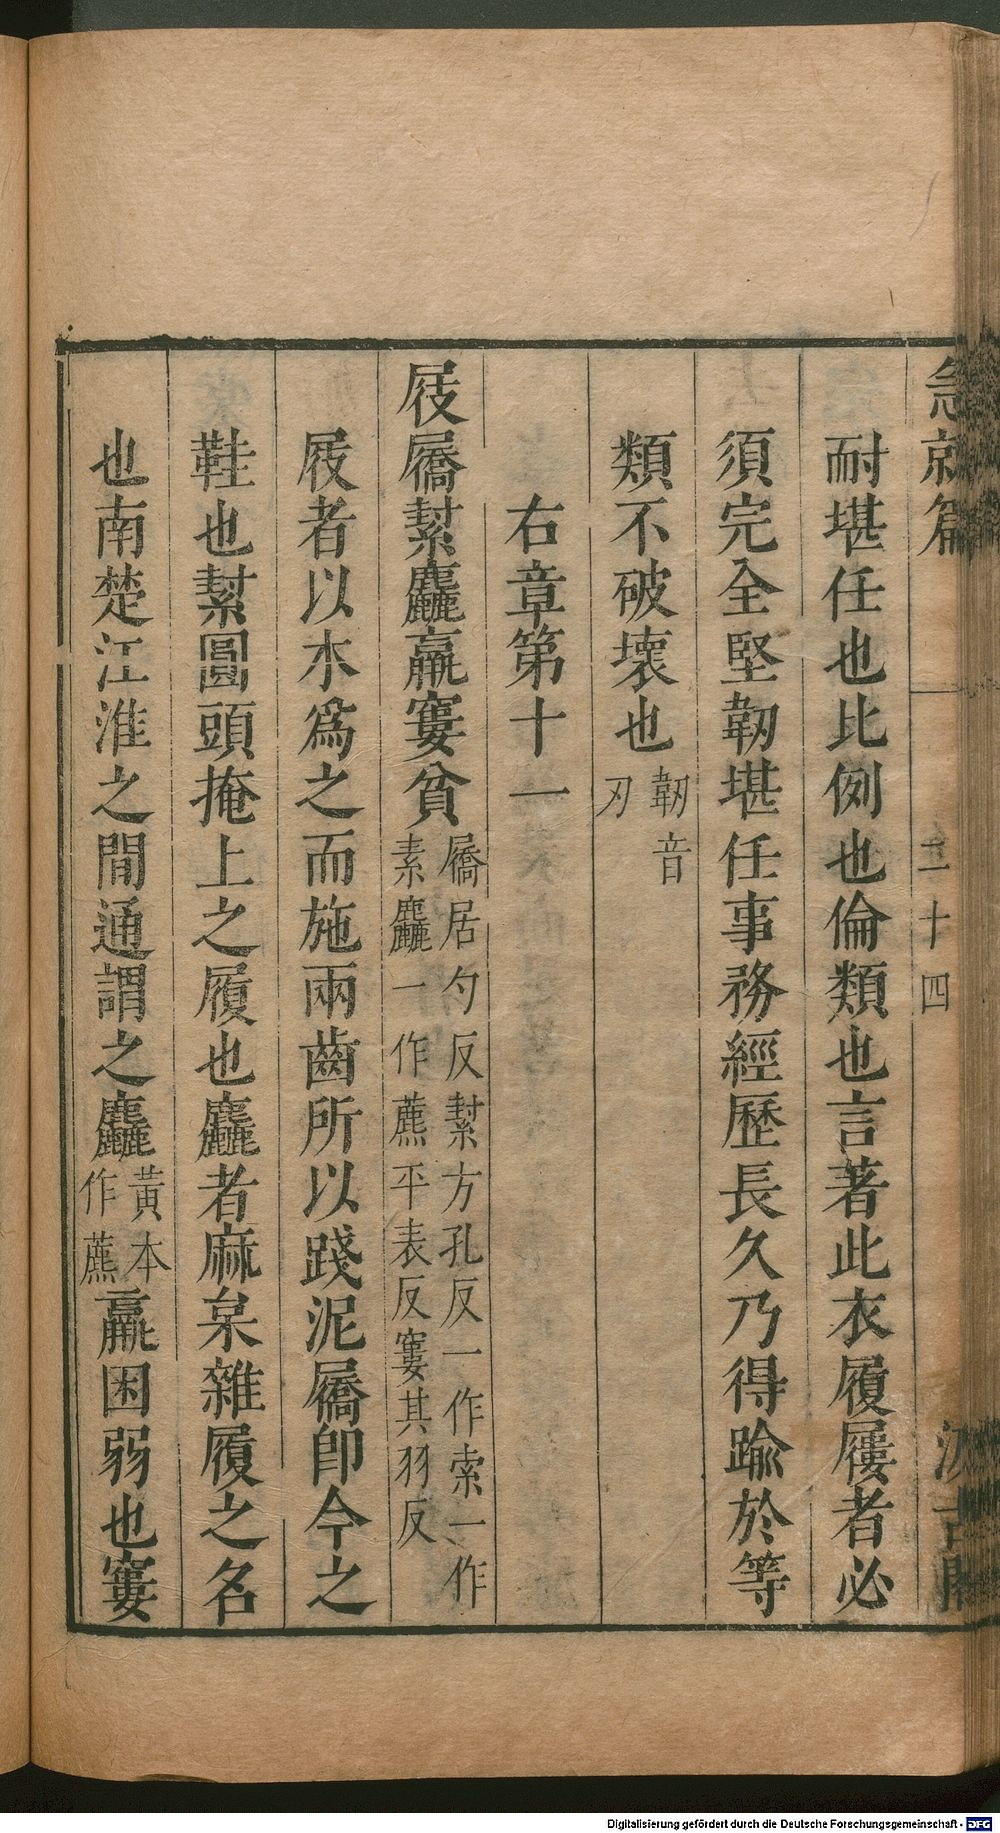 急就篇 二十四 汲古閣
耐堪任也比例也倫類也言著此衣履屨者必
須完全堅韌堪任事務經歷長久乃得踰於等
類不破壞也韌音刃
右章第十一
屐屩䋽麤羸窶貧屩居勺反䋽方孔反一作索一作素麤一作藨平表反窶其羽反
屐者以木爲之而施兩齒所以踐泥屩卽今之
鞋也䋽圓頭掩上之履也麤者麻枲雜履之名
也南楚江淮之間通謂之麤黃本作藨羸困弱也窶
Digitalisierung gefördert durch die Deutsche Forschungsgemeinschaft - DFG